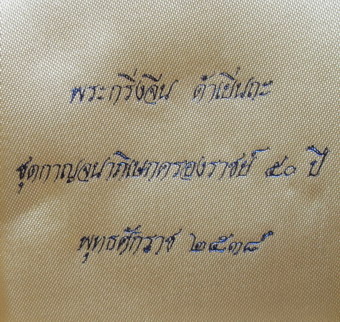 พระกริ่งจีน ต้าเยิ่นถะ
ชุดกาญจนาภิเษกครองราชย์ ๕๐ ปี
พุทธศักราช ๒๕๓๘